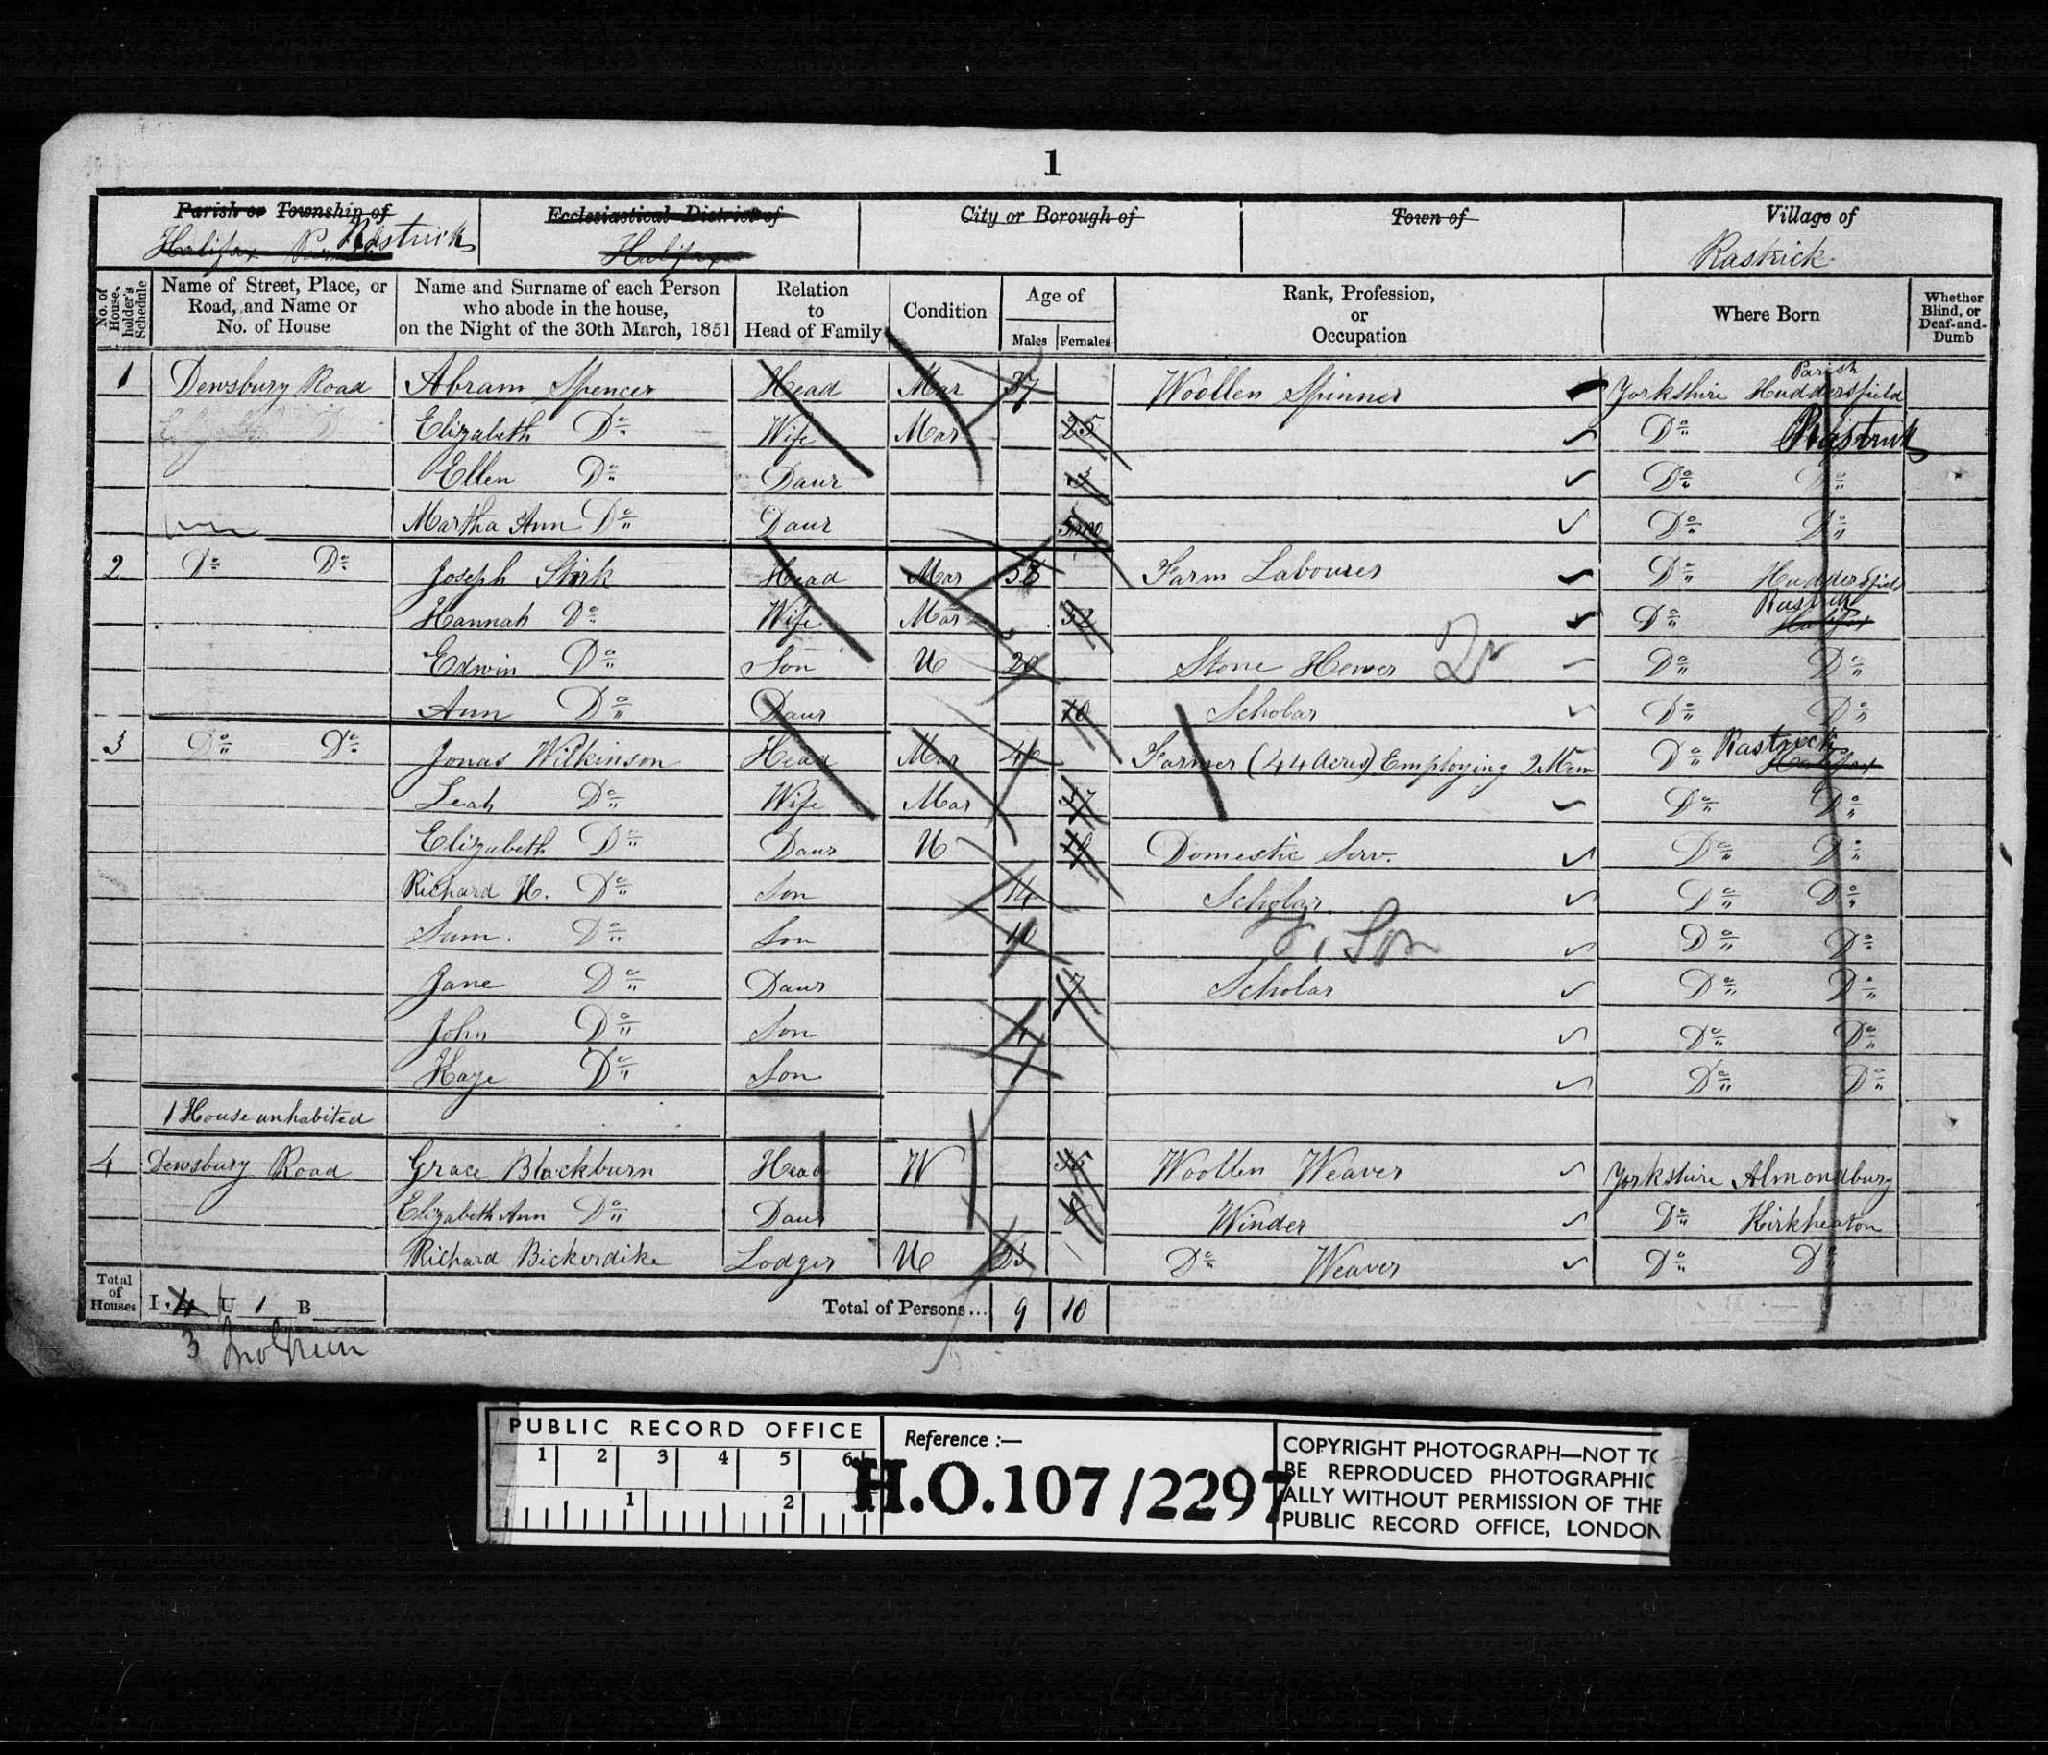 1
Parish or Township of Ecclesiastical District of City or Borough of Town of Village of
Halifax Rastrick Halifax Rastrick
No. of House-holder's Schedule
Name of Street, Place, or Road, and Name or No. of House
Name and Surname of each Person who abode in the house, on the Night of the 30th March, 1851
Relation to Head of Family
Condition
Age of
Males Females
Rank, Profession, or Occupation
Where Born
Whether Blind, or Deaf-and-Dumb
1 Dewsbury Road Abram Spencer Head Mar 37 Woollen Spinner Yorkshire Parish Huddersfield
Elizabeth Do Wife Mar 25 Do Rastrick
Ellen Do Daur 3 Do Do
Martha Ann Do Daur Do Do
2 Do Do Joseph Stirk Head Mar 53 Farm Labourer Do Huddersfield
Hannah Do Wife Mar 52 Do Rastrick Halifax
Edwin Do Son U 20 Stone Hewer Do Do
Ann Do Daur 10 Scholar Do Do
3 Do Do Jonas Wilkinson Head Mar Farmer (44 Acres) Employing 2 Men Do Rastrick Halifax
Leah Do Wife Mar 37 Do Do
Elizabeth Do Daur U Domestic Serv. Do Do
Richard H. Do Son 14 Scholar Do Do
Sam. Do Son 10 Son Do Do
Jane Do Daur 7 Scholar Do Do
John Do Son 4 Do Do
Haye Do Son Do Do
1 House unhabited
4 Dewsbury Road Grace Blackburn Head W Woollen Weaver Yorkshire Almondbury
Elizabeth Ann Do Daur Winder Do Kirkheaton
Richard Bickerdike Lodger U 23 Do Weaver Do Do
Total of Houses I. 4 U 1 B Total of Persons... 9 10
3
PUBLIC RECORD OFFICE
1 2 3 4 5 6
1 2
Reference :—
H.O.107/2297
COPYRIGHT PHOTOGRAPH—NOT TO
BE REPRODUCED PHOTOGRAPHIC
ALLY WITHOUT PERMISSION OF THE
PUBLIC RECORD OFFICE, LONDON